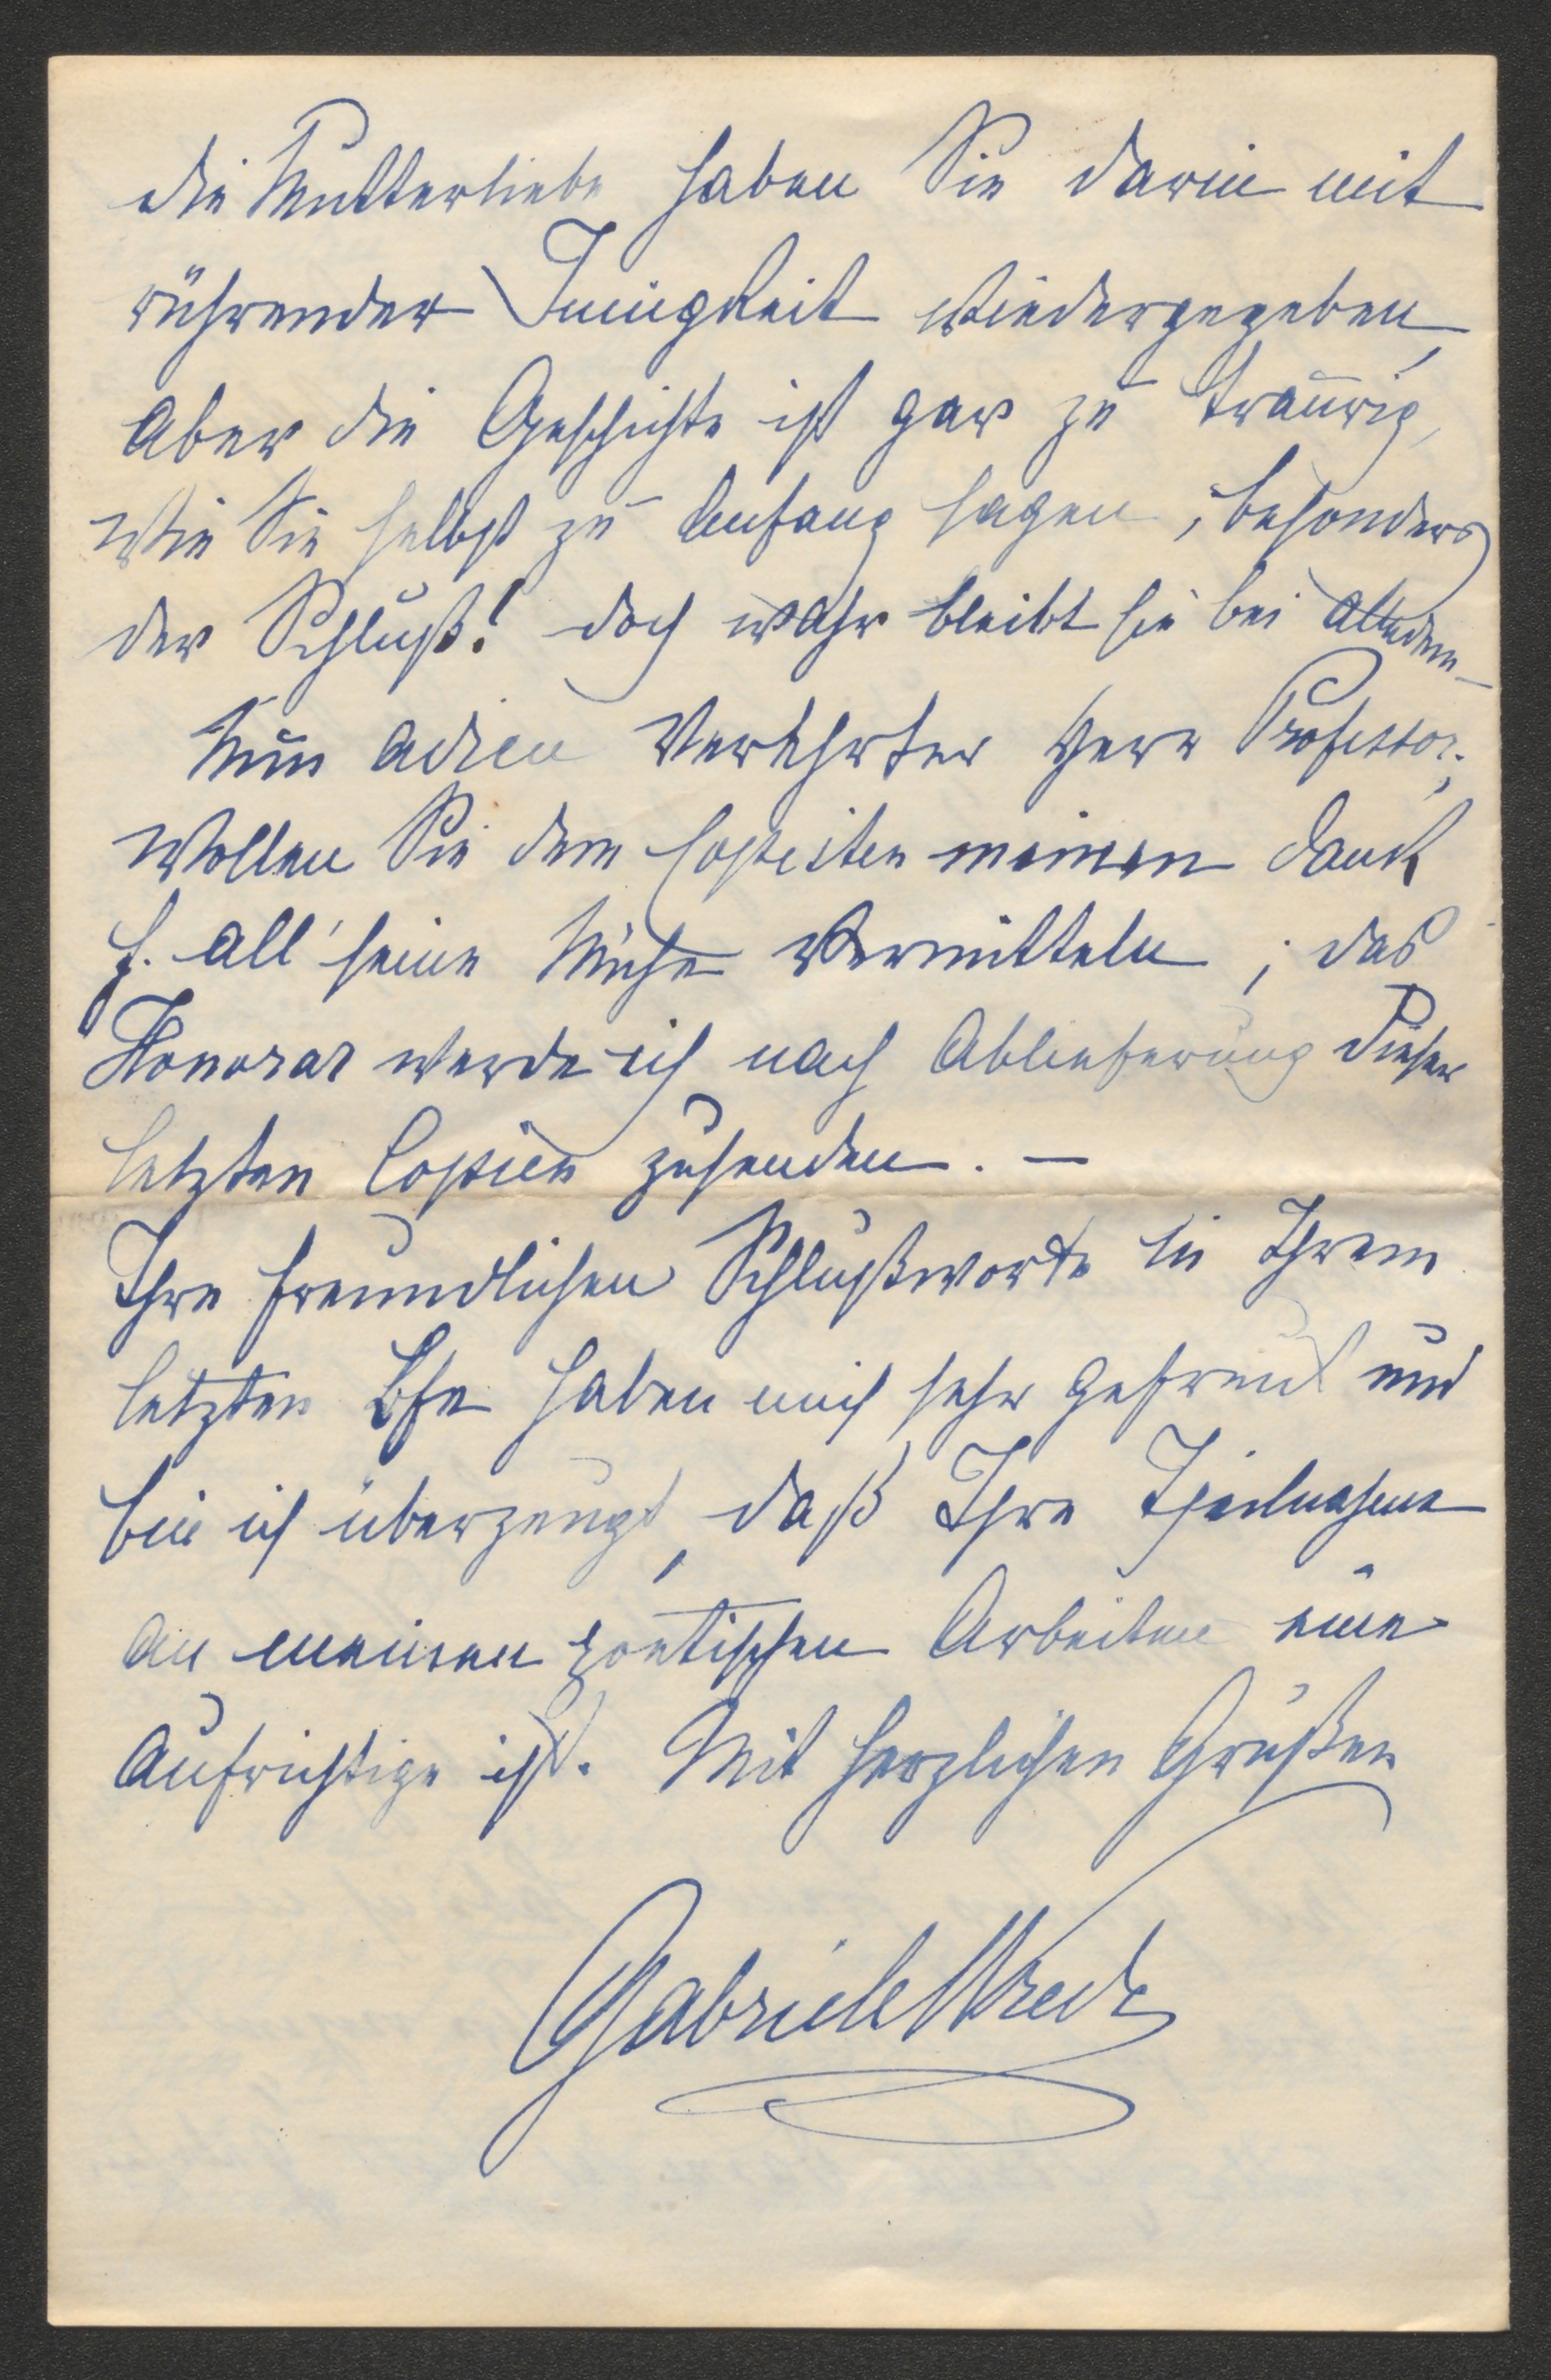 die Mutterliebe haben Sie darin mit
rührender Innigkeit wiedergegeben,
aber die Geschichte ist gar zu traurig,
wie Sie selbst zu Anfang sagen, besonders
der Schluß! doch wahr bleibt sie bei alledem –
Nun adieu verehrter Herr Professor;
wollen Sie dem Copisten meinen Dank
f. all' seine Mühe vermitteln; das
Honorar werde ich nach Ablieferung dieser
letzten Copien zusenden. –
Ihre freundlichen Schlußworte in Ihrem
letzten Bfe haben mich sehr gefreut und
bin ich überzeugt, daß Ihre Theilnahme
an meinen poetischen Arbeiten eine
aufrichtige ist. Mit herzlichen Grüßen
Gabriele Wrede